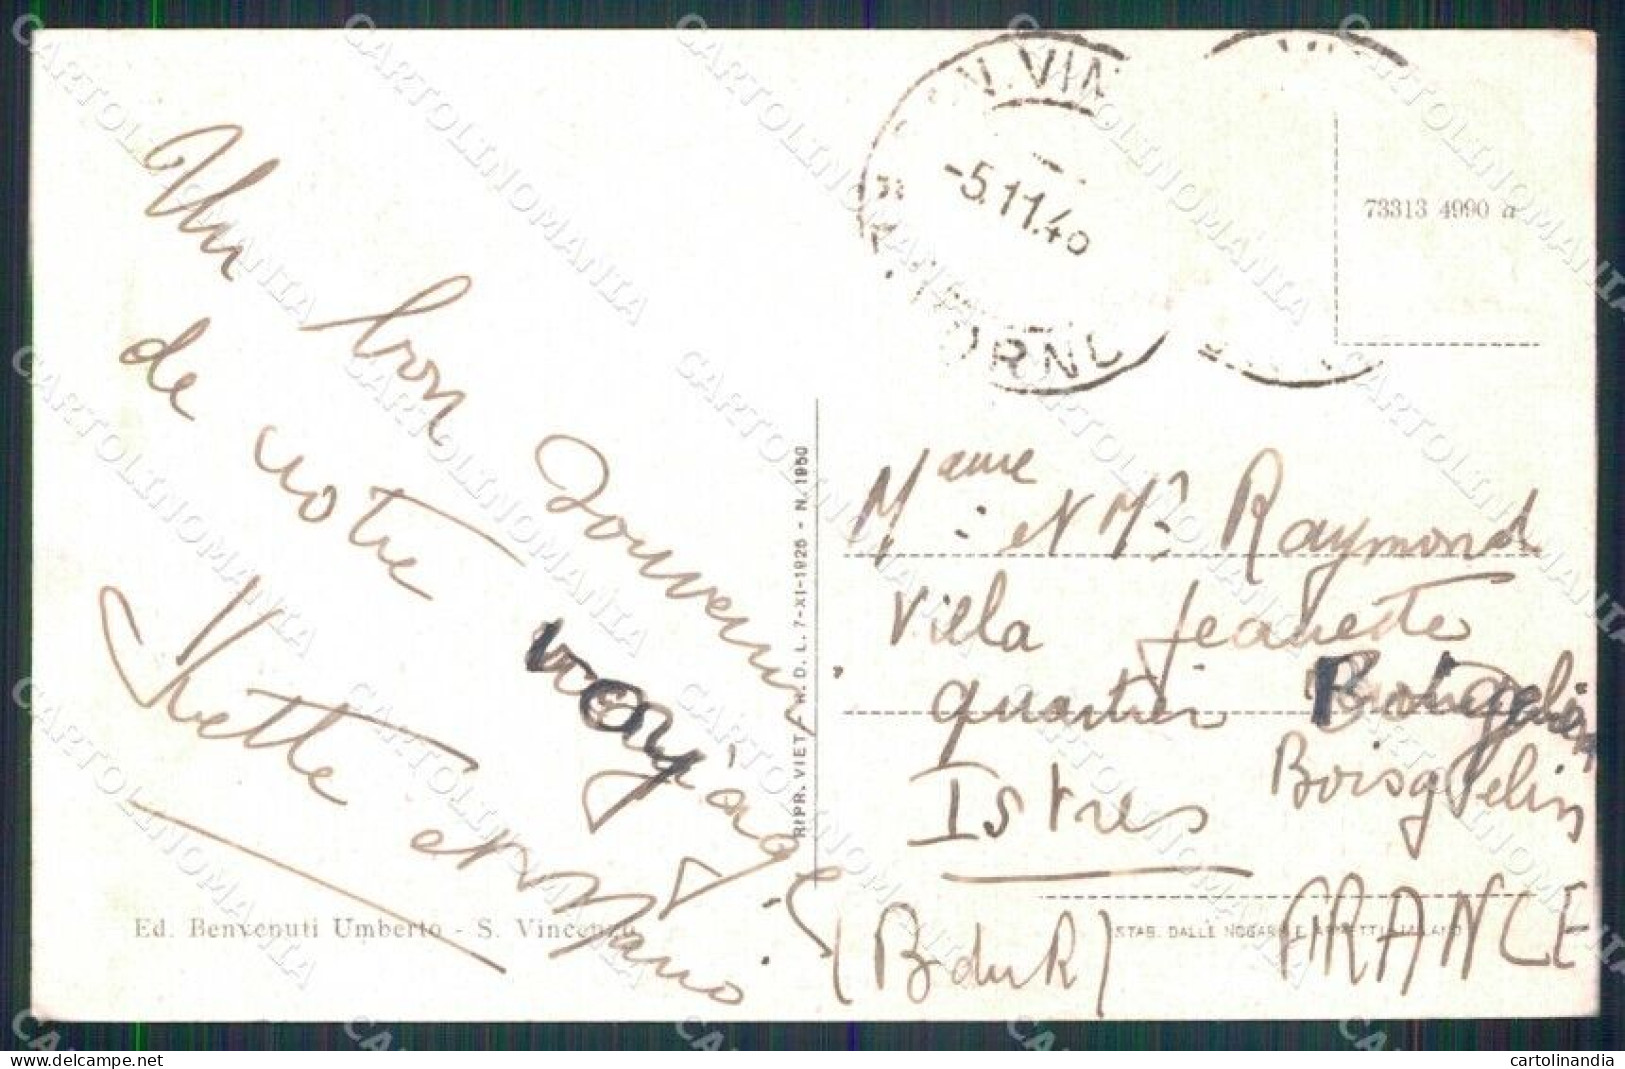 Un bon souvenir
de notre voyage
Yvette et Mario
Ed. Benvenuti Umberto - S. Vincenzo
RIPR. VIET. A R. D. L. 7-XI-1925 - N. 1950
N. VIN
-5.11.4
ORNO
73313 4990 a
Mame et Mr Raymond
Villa Jeanette
quartier
Boisgelin
Istres
(B du R)
FRANCE
STAB. DALLE NOGARE E ARMETTI - MILANO
CARTOLINOMANIA
cartolinandia